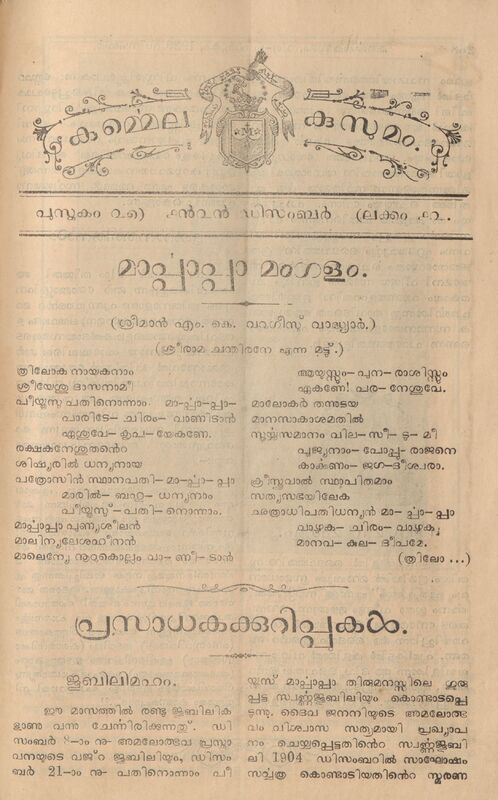 കർമ്മെല കുസുമം.
പുസ്തകം ൨൬) ൧൯൨൯ ഡിസംബർ (ലക്കം ൧൨.
മാർപ്പാപ്പാ മംഗളം.
(ശ്രീമാൻ എം. കെ. വറഗീസ് വാദ്ധ്യാർ.)
(ശ്രീരാമ ചന്തിരനേ എന്ന മട്ട്.)
ത്രിലോക നായകനാം
ശ്രീയേശു ദാസനാമീ
പീയൂസ പതിനൊന്നാം. മാ-ർപ്പാ-പ്പാ-
പാരിടേ- ചിരം- വാണിടാൻ
ഏശുവേ- കൃപ- യേകണേ.
രക്ഷകനേശുതൻെറ
ശിഷ്യരിൽ ധന്യനായ
പത്രോസിൻ സ്ഥാനപതി- മാ-ർപ്പാ- പ്പാ
മാരിൽ- ബഹു- ധന്യനാം
പീയൂസ്- പതി- നൊന്നാം.
മാർപ്പാപ്പാ പുണ്യശീലൻ
മാലിന്യലേശഹീനൻ
മാലെന്യേ നൂറുകൊല്ലം വാ- ണീ- ടാൻ
ആയുസ്സും- പുന- രാശിസ്സും
ഏകണേ! പര- നേശുവേ.
മാലോകർ തന്നുടയ
മാനസാകാശമതിൽ
സൂര്യസമാനം വില- സീ- ടു- മീ
പൂജ്യനാം- പോപ്പു- രാജനെ
കാക്കണം- ജഗ-ദീശ്വരാ.
ക്രീസ്തുവാൽ സ്ഥാപിതമാം
സത്യസഭയിലേക
ഛത്രാധിപതിധന്യൻ മാ- ർപ്പാ- പ്പാ
വാഴുക- ചിരം- വാഴ്ക
മാനവ- കുല- ദീപമേ.
(ത്രിലോ ...)
പ്രസാധകക്കുറിപ്പുകൾ.
ജൂബിലിമഹം.
ഈ മാസത്തിൽ രണ്ടു ജൂബിലിക
ളാണു വന്നു ചേർന്നിരിക്കുന്നത്. ഡി
സംബർ 8-ാം നു- അമലോത്ഭവ പ്രസ്താ
വനയുടെ വജ്ര ജൂബിലിയും, ഡിസം
ബർ 21-ാം നു- പതിനൊന്നാം പീ
യൂസ് മാർപ്പാപ്പാ തിരുമനസ്സിലെ ഗുരു
പ്പട്ട സ്വർണ്ണജൂബിലിയും കൊണ്ടാടപ്പെ
ടുന്നു. ദൈവ ജനനിയുടെ അമലോത്ഭ
വം വിശ്വാസ സത്യമായി പ്രഖ്യാപ
നം ചെയ്യപ്പെട്ടതിൻെറ സ്വർണ്ണജൂബി
ലി 1904 ഡിസംബറിൽ സാഘോഷം
സർവ്വത്ര കൊണ്ടാടിയതിൻെറ സ്മരണ